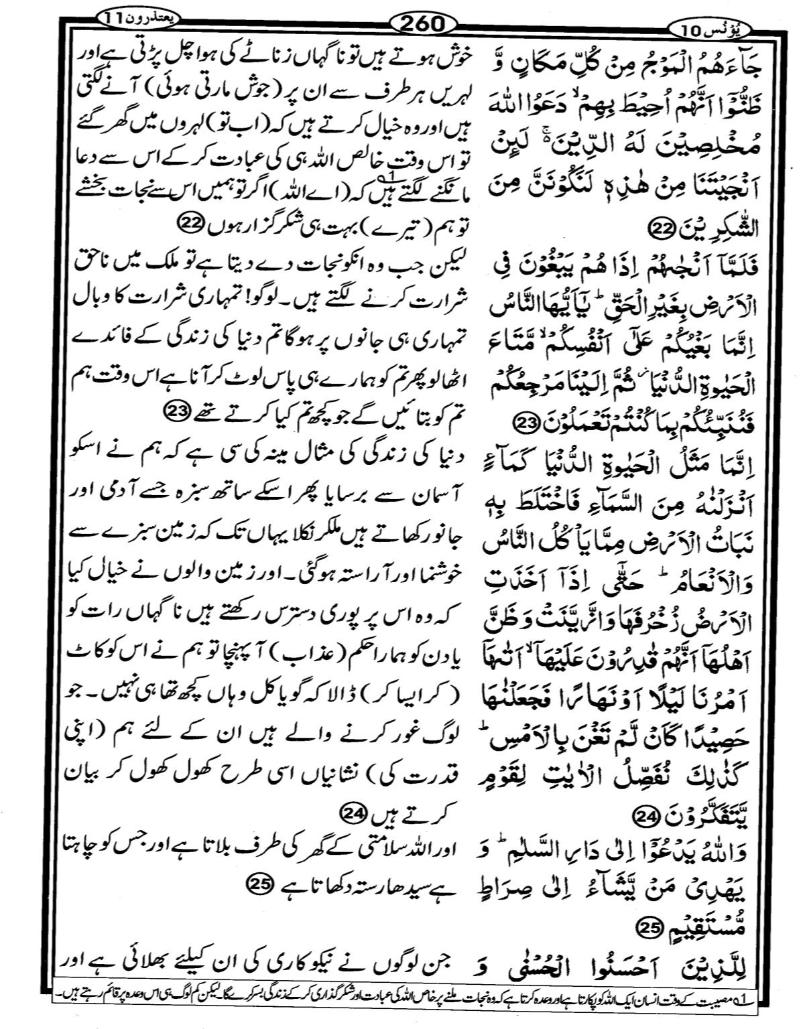 یُوْنُس 10
260
یعتذرون 11
جَآءَهُمُ الْمَوْجُ مِنْ كُلِّ مَكَانٍ وَّ
ظَنُّوْۤا اَنَّهُمْ اُحِیْطَ بِهِمْ ۙ دَعَوُا اللّٰهَ
مُخْلِصِیْنَ لَهُ الدِّیْنَ ۚ۬ لَئِنْ
اَنْجَیْتَنَا مِنْ هٰذِهٖ لَنَكُوْنَنَّ مِنَ
الشّٰكِرِیْنَ ﴿22﴾
فَلَمَّاۤ اَنْجٰىهُمْ اِذَا هُمْ یَبْغُوْنَ فِی
الْاَرْضِ بِغَیْرِ الْحَقِّ ؕ یٰۤاَیُّهَا النَّاسُ
اِنَّمَا بَغْیُكُمْ عَلٰۤی اَنْفُسِكُمْ ۙ مَّتَاعَ
الْحَیٰوةِ الدُّنْیَا ؗ ثُمَّ اِلَیْنَا مَرْجِعُكُمْ
فَنُنَبِّئُكُمْ بِمَا كُنْتُمْ تَعْمَلُوْنَ ﴿23﴾
اِنَّمَا مَثَلُ الْحَیٰوةِ الدُّنْیَا كَمَآءٍ
اَنْزَلْنٰهُ مِنَ السَّمَآءِ فَاخْتَلَطَ بِهٖ
نَبَاتُ الْاَرْضِ مِمَّا یَاْكُلُ النَّاسُ
وَالْاَنْعَامُ ؕ حَتّٰۤی اِذَاۤ اَخَذَتِ
الْاَرْضُ زُخْرُفَهَا وَازَّیَّنَتْ وَظَنَّ
اَهْلُهَاۤ اَنَّهُمْ قٰدِرُوْنَ عَلَیْهَاۤ ۙ اَتٰىهَاۤ
اَمْرُنَا لَیْلًا اَوْ نَهَارًا فَجَعَلْنٰهَا
حَصِیْدًا كَاَنْ لَّمْ تَغْنَ بِالْاَمْسِ ؕ
كَذٰلِكَ نُفَصِّلُ الْاٰیٰتِ لِقَوْمٍ
یَّتَفَكَّرُوْنَ ﴿24﴾
وَاللّٰهُ یَدْعُوْۤا اِلٰی دَارِ السَّلٰمِ ؕ وَ
یَهْدِیْ مَنْ یَّشَآءُ اِلٰی صِرَاطٍ
مُّسْتَقِیْمٍ ﴿25﴾
لِلَّذِیْنَ اَحْسَنُوا الْحُسْنٰی وَ
خوش ہوتے ہیں تو ناگہاں زناٹے کی ہوا چل پڑتی ہے اور
لہریں ہر طرف سے ان پر (جوش مارتی ہوئی) آنے لگتی
ہیں اور وہ خیال کرتے ہیں کہ (اب تو) لہروں میں گھر گئے
تو اس وقت خالص اللہ ہی کی عبادت کر کے اس سے دعا
مانگنے لگتے ہیں 1 کہ (اے اللہ) اگر تو ہمیں اس سے نجات بخشے
تو ہم (تیرے) بہت ہی شکر گزار ہوں (22)
لیکن جب وہ انکو نجات دے دیتا ہے تو ملک میں ناحق
شرارت کرنے لگتے ہیں۔ لوگو! تمہاری شرارت کا وبال
تمہاری ہی جانوں پر ہوگا تم دنیا کی زندگی کے فائدے
اٹھالو پھر تم کو ہمارے ہی پاس لوٹ کر آنا ہے اس وقت ہم
تم کو بتائیں گے جو کچھ تم کیا کرتے تھے (23)
دنیا کی زندگی کی مثال مینہ کی سی ہے کہ ہم نے اسکو
آسمان سے برسایا پھر اسکے ساتھ سبزہ جسے آدمی اور
جانور کھاتے ہیں ملکر نکلا یہاں تک کہ زمین سبزے سے
خوشنما اور آراستہ ہوگئی۔ اور زمین والوں نے خیال کیا
کہ وہ اس پر پوری دسترس رکھتے ہیں ناگہاں رات کو
یا دن کو ہمارا حکم (عذاب) آ پہنچا تو ہم نے اس کو کاٹ
(کر ایسا کر) ڈالا کہ گویا کل وہاں کچھ تھا ہی نہیں۔ جو
لوگ غور کرنے والے ہیں ان کے لئے ہم (اپنی
قدرت کی) نشانیاں اسی طرح کھول کھول کر بیان
کرتے ہیں (24)
اور اللہ سلامتی کے گھر کی طرف بلاتا ہے اور جس کو چاہتا
ہے سیدھا رستہ دکھاتا ہے (25)
جن لوگوں نے نیکوکاری کی ان کیلئے بھلائی ہے اور
1 مصیبت کے وقت انسان ایک اللہ کو پکارتا ہے اور وعدہ کرتا ہے کہ وہ نجات ملنے پر خاص اللہ کی عبادت اور شکر گذاری کر کے زندگی بسر کرے گا لیکن کم لوگ ہی اس وعدہ پر قائم رہتے ہیں۔